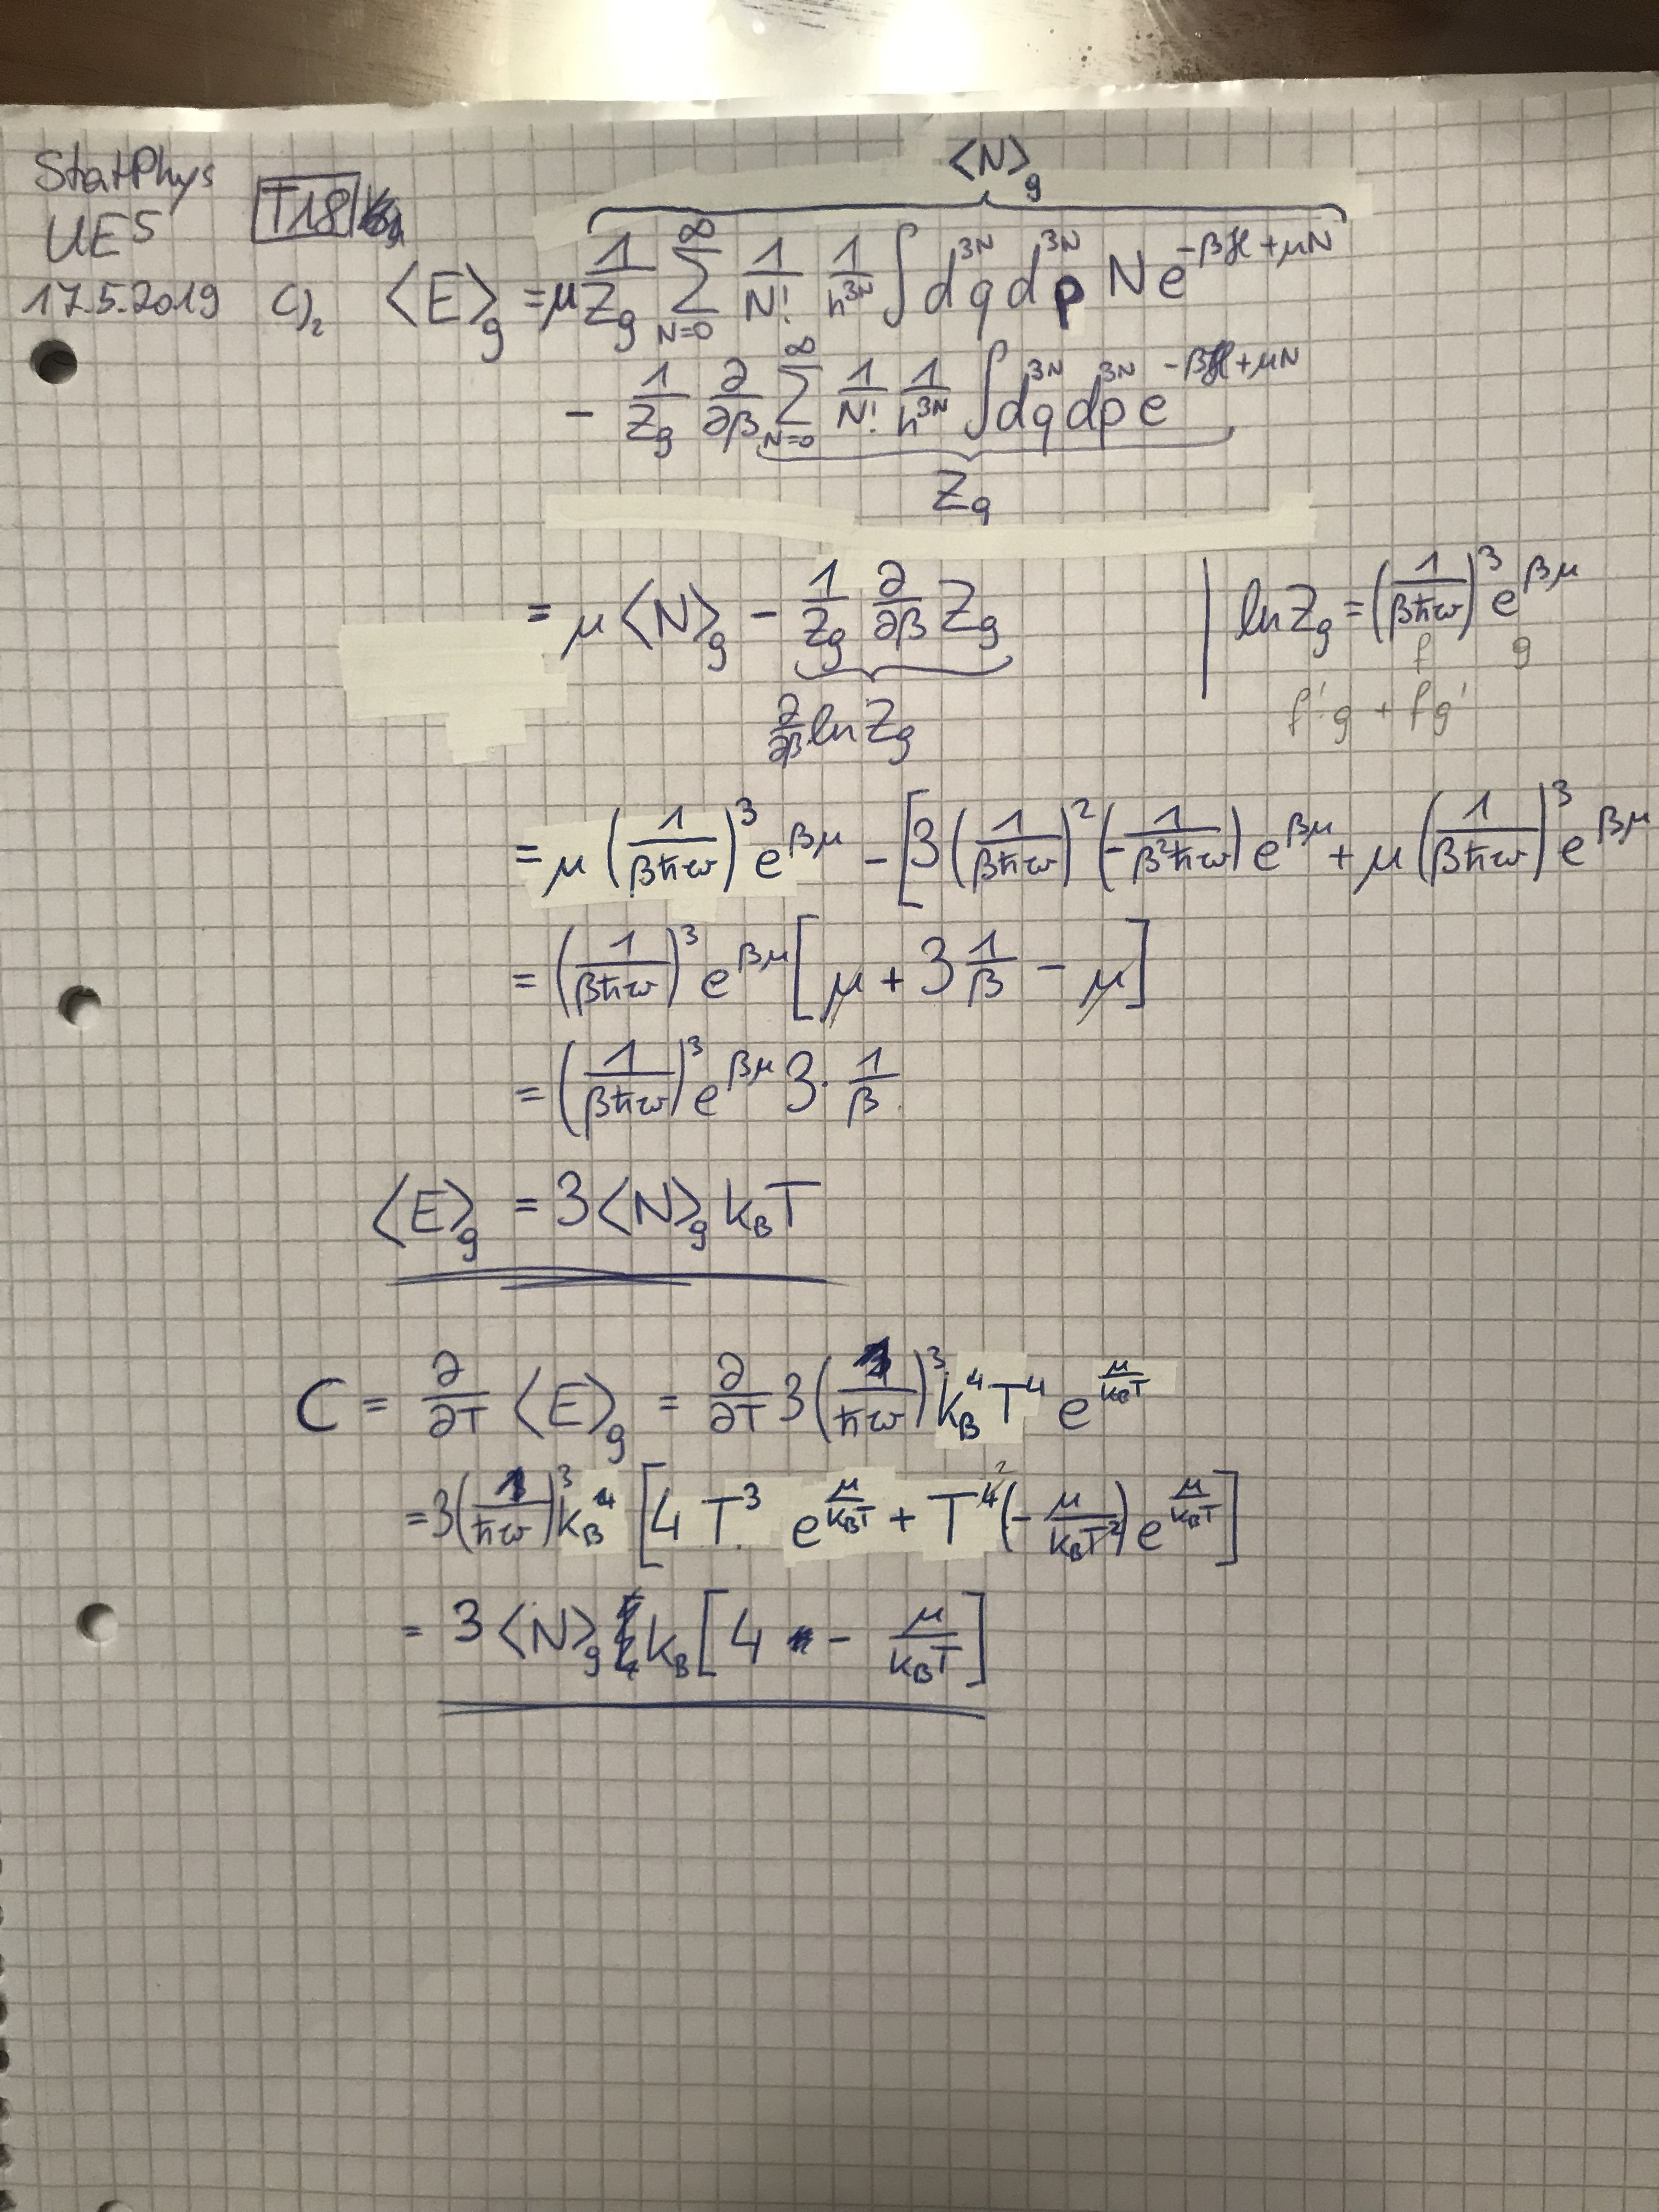 StatPhys
UE5
17.5.2019
T18
⟨N⟩_g
c)₂ ⟨E⟩_g = μ 1/Z_g ∑_{N=0}^{∞} 1/N! 1/h^{3N} ∫ d^{3N}q d^{3N}p N e^{-βH + μN}
- 1/Z_g ∂/∂β ∑_{N=0}^{∞} 1/N! 1/h^{3N} ∫ d^{3N}q d^{3N}p e^{-βH + μN}
Z_g
= μ⟨N⟩_g - 1/Z_g ∂/∂β Z_g | ln Z_g = (1/βħω)^3 e^{βμ}
f g
∂/∂β ln Z_g
f'g + fg'
= μ (1/βħω)^3 e^{βμ} - [3 (1/βħω)^2 (-1/β²ħω) e^{βμ} + μ (1/βħω)^3 e^{βμ}
= (1/βħω)^3 e^{βμ} [μ + 3 1/β - μ]
= (1/βħω)^3 e^{βμ} 3 · 1/β
⟨E⟩_g = 3⟨N⟩_g k_B T
C = ∂/∂T ⟨E⟩_g = ∂/∂T 3 (1/ħω)^3 k_B^4 T^4 e^{μ/k_BT}
= 3 (1/ħω)^3 k_B^4 [4 T^3 e^{μ/k_BT} + T^{4 2} (-μ/k_BT²) e^{μ/k_BT}]
= 3⟨N⟩_g k_B [4 - μ/k_BT]